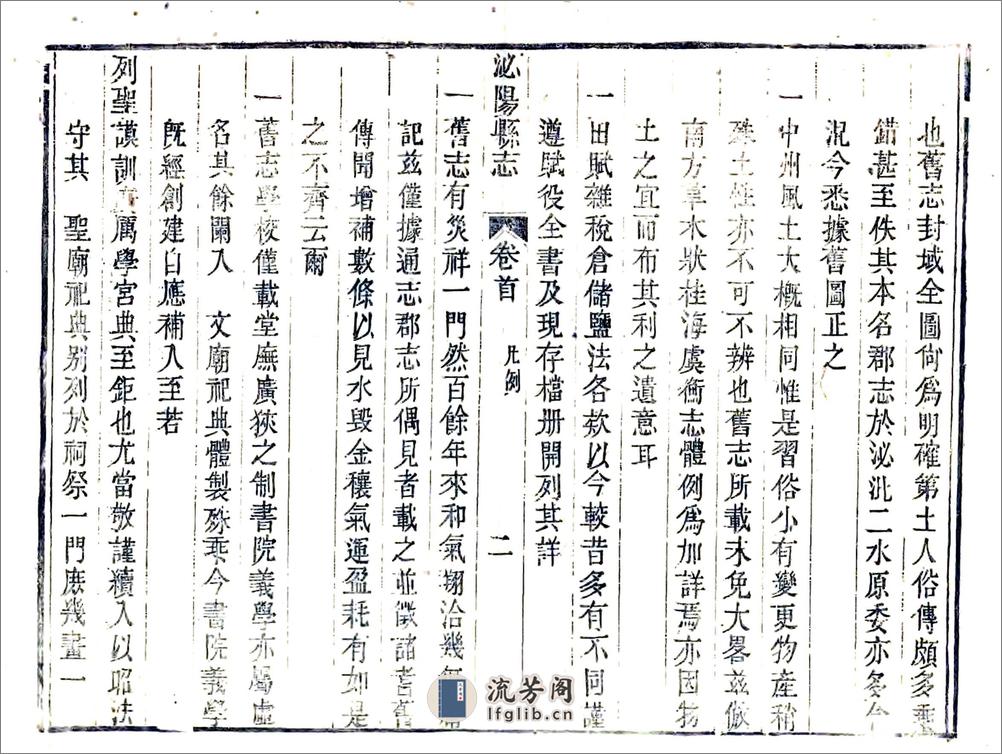 也舊志封域全圖尙爲明確第土人俗傳頗多乖
錯甚至佚其本名郡志於泌沘二水原委亦多欠
況今悉據舊圖正之
一中州風土大概相同惟是習俗小有變更物產稍
殊土性亦不可不辨也舊志所載未免大畧茲倣
南方草木狀桂海虞衡志體例爲加詳焉亦因物
土之宜而布其利之遺意耳
一田賦雜稅倉儲鹽法各欸以今較昔多有不同謹
遵賦役全書及現存檔册開列其詳
泌陽縣志 卷首 凡例 二
一舊志有災祥一門然百餘年來和氣翔洽幾無
記茲僅據通志郡志所偶見者載之並徵諸耆舊
傳聞增補數條以見水毀金穰氣運盈耗有如是
之不齊云爾
一舊志學校僅載堂廡廣狹之制書院義學亦屬虛
名其餘闌入 文廟祀典體製殊乖今書院義學
旣經創建自應補入至若
列聖謨訓 厲學宮典至鉅也尤當敬謹續入以昭法
守其 聖廟祀典别列於祠祭一門庶幾畫一
流芳阁
lfglib.cn